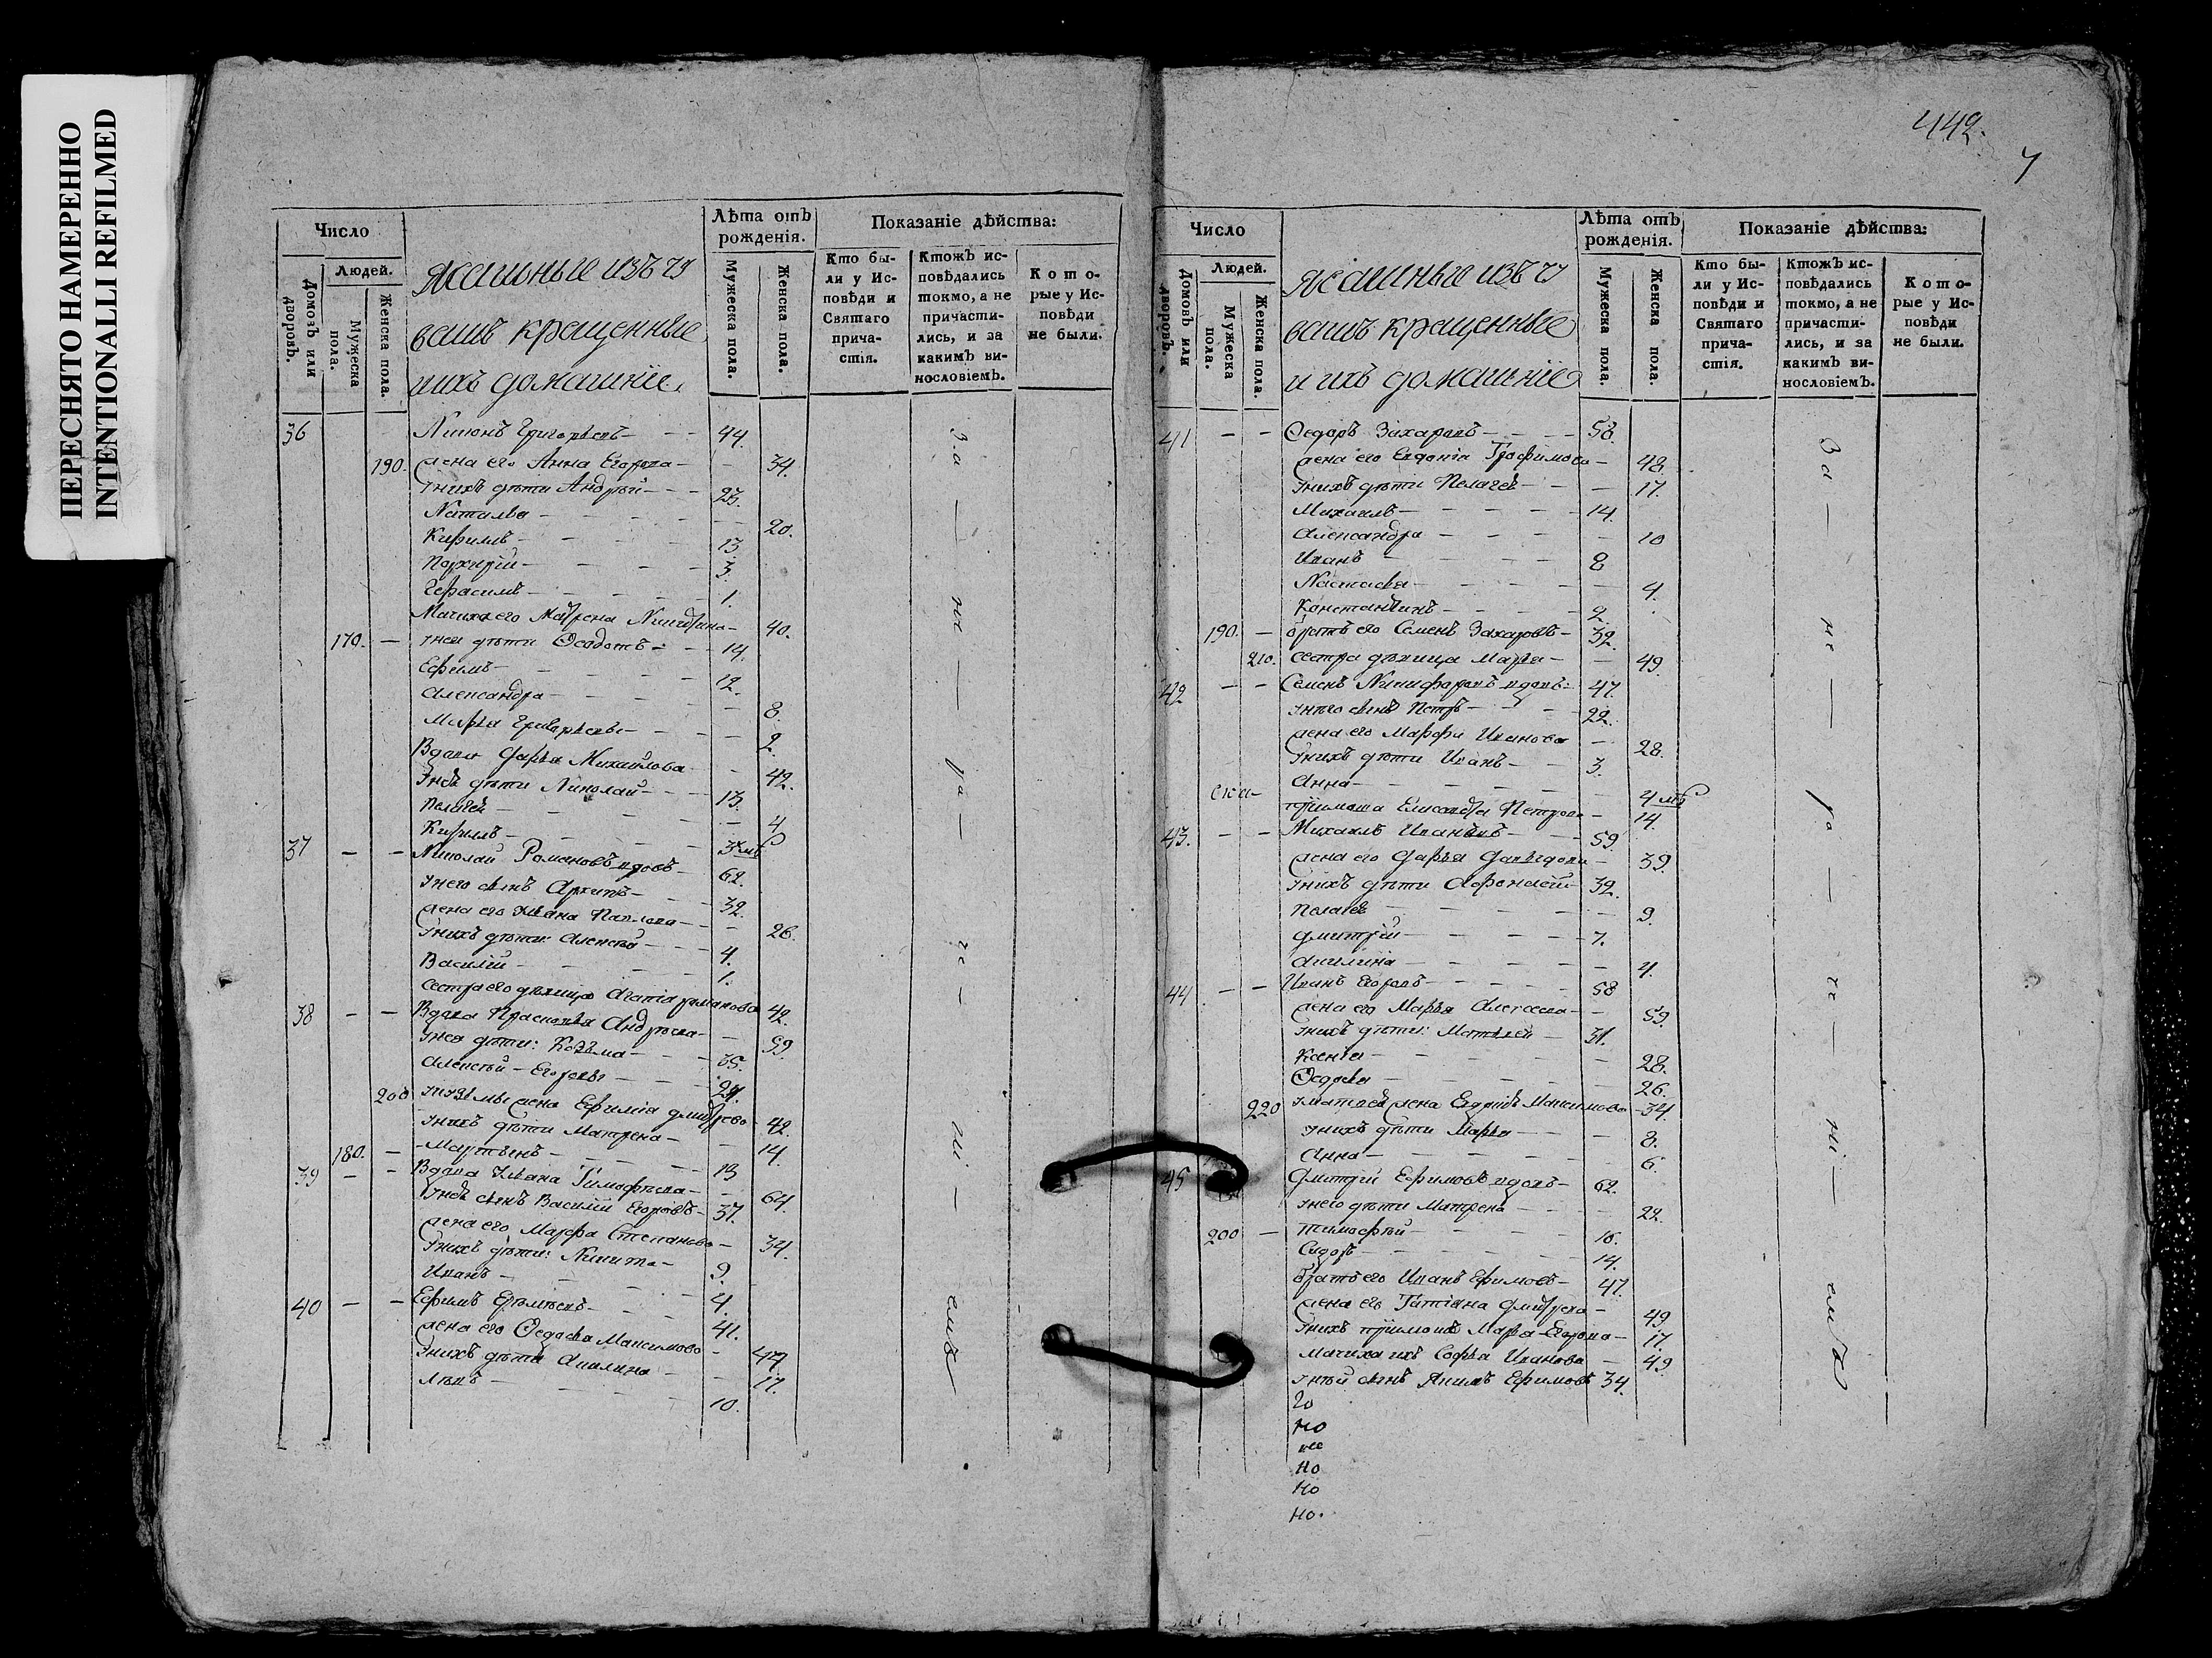 ПЕРЕСНЯТО НАМЕРЕННО
INTENTIONALLI REFILMED
Число
Людей.
Домовъ или дворовъ.
Мужеска пола.
Женска пола.
Ясашные изъ чу
вашъ крещенные
и ихъ домашніе.
Лѣта отъ рожденія.
Мужеска пола.
Женска пола.
Показаніе дѣйства:
Кто были у Исповѣди и Святаго причастія.
Ктожъ исповѣдались токмо, а не причастились, и за какимъ винословіемъ.
Которые у Исповѣди не были.
36 Григорьевъ 44.
190. жена его Анна Егорова 34.
у нихъ дѣти Андрей 23.
Наталья 20.
Кирилъ 13
3.
Герасимъ 1.
Мачиха его Матрена 40.
170. у нея дѣти Ѳедотъ 14.
Ефимъ 12.
Александра 8.
Марья Григорьевы 2.
Вдова Дарья Михайлова 42.
у неѣ дѣти Николай 13.
Пелагея 4
Кирилъ
37 Николай Романовъ вдовъ 62.
у него сынъ Архипъ 32.
жена его Ульяна Павлова 26.
у нихъ дѣти: Алексѣй 4.
Василій 1.
Сестра его дѣвица Агапія Романова 42.
38 Вдова Прасковья Андреева 59
у нея дѣти: Козьма 35.
Алексѣй Егоровы 24.
200 у Козьмы жена Ефимія Дмитрева 42.
у нихъ дѣти Матрена 14.
180. Мартынъ 13
39 Вдова Ульяна Тимофѣева 64.
у неѣ сынъ Василій Егоровъ 37.
жена его Марфа Степанова 34.
у нихъ дѣти: Никита 9.
Иванъ 4.
40 Ефимъ 41.
жена его Ѳедосья Максимова 47
у нихъ дѣти Акилина 17.
Левъ 10.
за
не
ра
че
ні
емъ
442.
7
Число
Людей.
Домовъ или дворовъ.
Мужеска пола.
Женска пола.
Ясашные изъ чу
вашъ крещенные
и ихъ домашніе
Лѣта отъ рожденія.
Мужеска пола.
Женска пола.
Показаніе дѣйства:
Кто были у Исповѣди и Святаго причастія.
Ктожъ исповѣдались токмо, а не причастились, и за какимъ винословіемъ.
Которые у Исповѣди не были.
41 Ѳедоръ Захаровъ 58.
жена его Евдокія Трофимова 48.
у нихъ дѣти Пелагея 17.
Михаилъ 14.
Александра 10
Иванъ 8
Настасья 4.
Константинъ 2.
190. братъ его Семенъ Захаровъ 32.
210. сестра дѣвица Марья 49.
42 Семенъ Никифоровъ вдовъ 47.
у него сынъ Петръ 22.
жена его Марфа Иванова 28.
у нихъ дѣти Иванъ 3.
Анна
Петрова 14.
43. Михаилъ Ивановъ 59.
жена его Дарья 39.
у нихъ дѣти Афонасій 32.
Пелагея 9.
Дмитрій 7.
Акилина 4.
44 Иванъ Егоровъ 58
жена его Марья Алексеева 59.
у нихъ дѣти: Матвей 31.
Ксенія 28.
Ѳедосья 26.
220 у Матвея жена Максимова 34.
у нихъ дѣти Марья 8.
Анна 6.
45 Дмитрій Ефимовъ вдовъ 62.
у него дѣти Матрена 22.
200 Тимофѣй 16.
Сидоръ 14.
братъ его Иванъ Ефимовъ 47.
жена его Татіана Дмитрева 49
у нихъ Марфа Егорова 17.
мачиха ихъ Софья Иванова 49
у ней сынъ Якимъ Ефимовъ 34.
но
но
но
но.
За
не
ра
че
ні
емъ